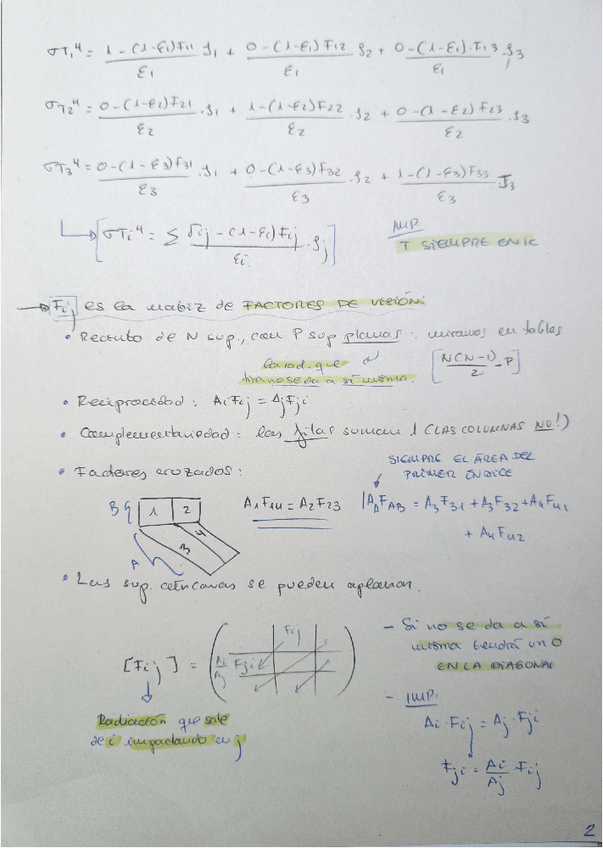 σT₁⁴ = (1-(1-ε₁)F₁₁)/ε₁ J₁ + (0-(1-ε₁)F₁₂)/ε₁ J₂ + (0-(1-ε₁)·F₁₃)/ε₁ · J₃
σT₂⁴ = (0-(1-ε₂)F₂₁)/ε₂ · J₁ + (1-(1-ε₂)F₂₂)/ε₂ · J₂ + (0-(1-ε₂)F₂₃)/ε₂ · J₃
σT₃⁴ = (0-(1-ε₃)F₃₁)/ε₃ · J₁ + (0-(1-ε₃)F₃₂)/ε₃ · J₂ + (1-(1-ε₃)F₃₃)/ε₃ J₃
[σTi⁴ = Σ (δij - (1-εi)Fij)/εi · Jj]
IMP
T SIEMPRE EN K
→ Fij es la matriz de FACTORES DE VISIÓN:
• Recinto de N sup., con P sup planas : miramos en tablas
[N(N-1)/2 - P]
la rad. que
no se da a sí misma.
• Reciprocidad : AiFij = AjFji
• Complementariedad : las filas suman 1 (LAS COLUMNAS NO!)
• Factores cruzados :
SIEMPRE EL ÁREA DEL
PRIMER ÍNDICE
B 1 2
3 4
A
A₁F₁₄ = A₂F₂₃
A_A F_AB = A₃F₃₁ + A₃F₃₂ + A₄F₄₁
+ A₄F₄₂
• Las sup. cóncavas se pueden aplanar.
[Fij] = ( Fij
Ai/Aj Fji )
Radiación que sale
de i impactando en j
- Si no se da a sí
misma tendrá un 0
EN LA DIAGONAL
- IMP.
Ai · Fij = Aj · Fji
Fji = Ai/Aj · Fij
2